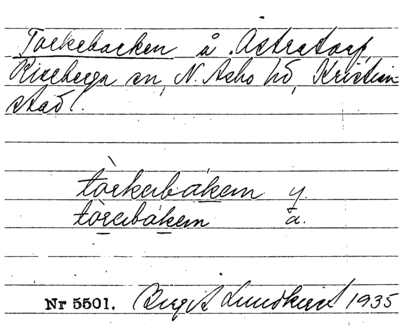 Torkebacken å Åstratorp,
Riseberga sn, N. Åsbo hd, Kristian-
stad l.
tòrkəbákəm y.
tòrəbákəm ä.
Nr 5501. Birgit Lundkvist 1935